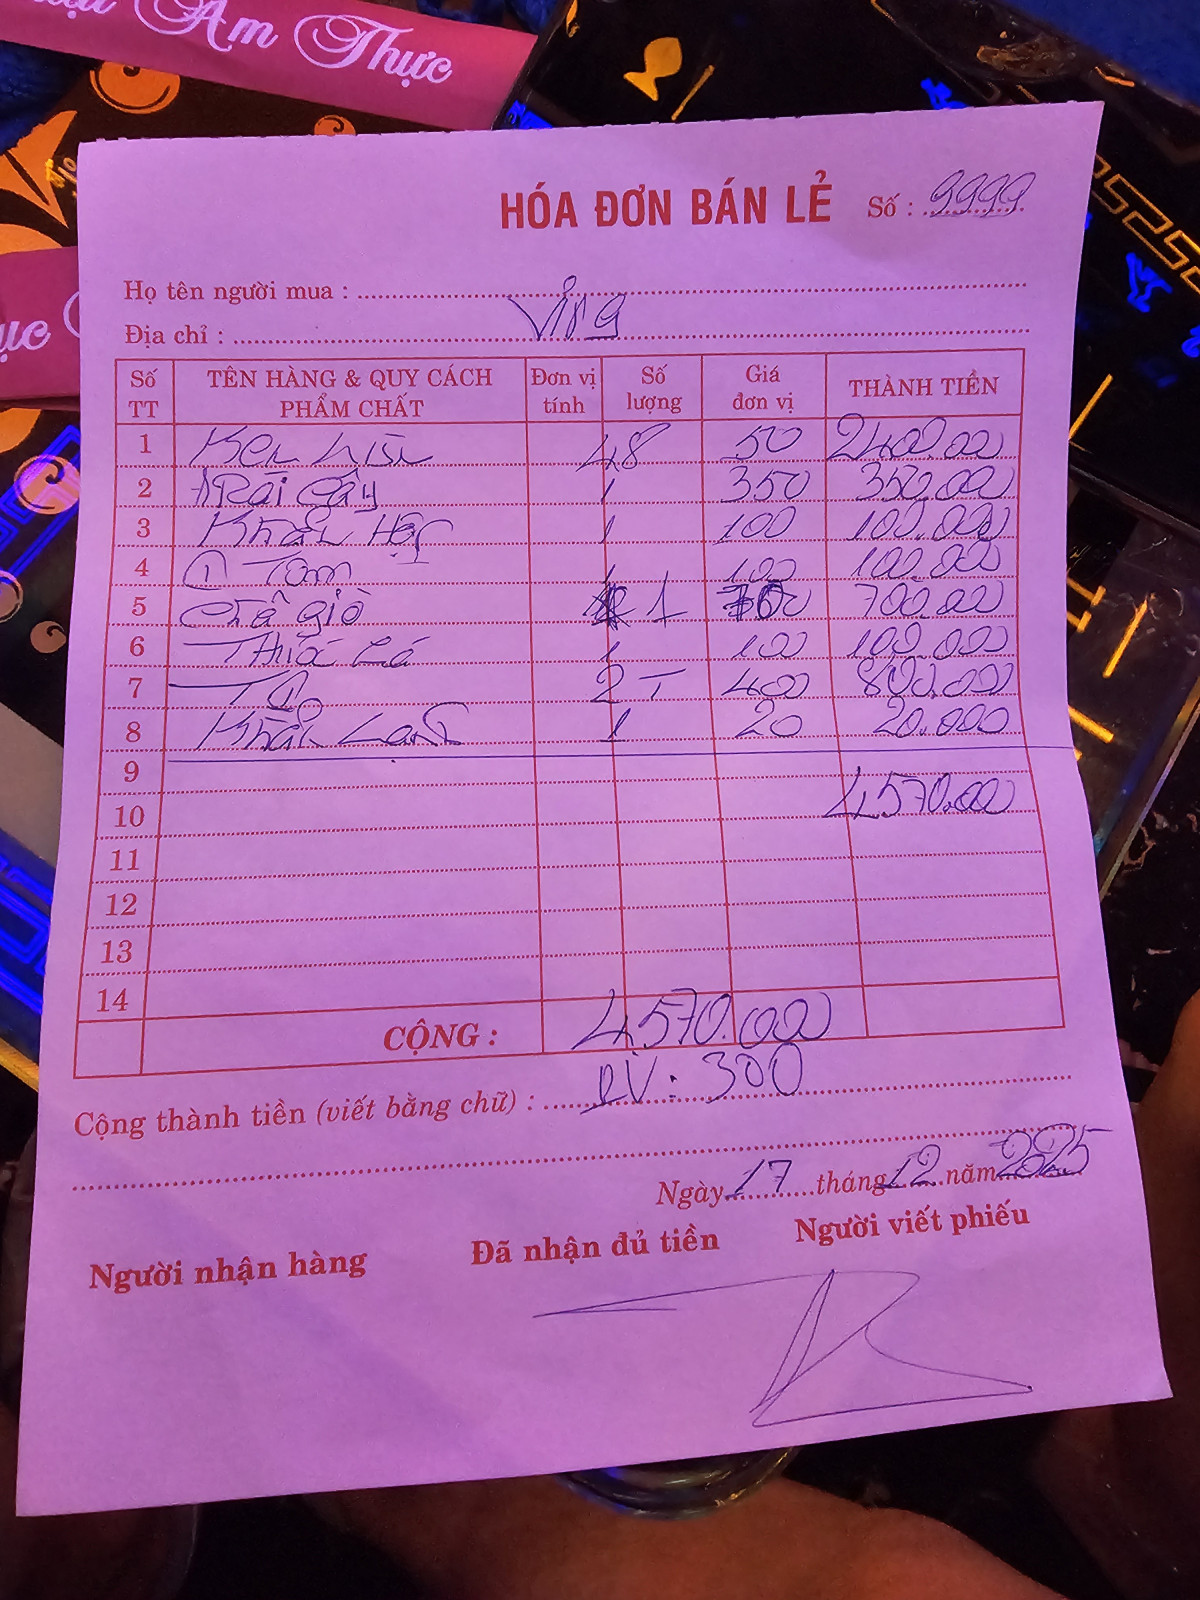 Ẩm Thực
ực
HÓA ĐƠN BÁN LẺ Số : 9999
Họ tên người mua :
Địa chỉ :
Số TT TÊN HÀNG & QUY CÁCH PHẨM CHẤT Đơn vị tính Số lượng Giá đơn vị THÀNH TIỀN
1 Ken 48 50 2400.000
2 Trái Cây 1 350 350.000
3 Khăn Hộp 1 100 100.000
4 1 100 100.000
5 Chả giò 1 700 700.000
6 Thuốc Lá 1 100 100.000
7 2 T 400 800.000
8 Khăn Lạnh 1 20 20.000
9
10 4.570.000
11
12
13
14
CỘNG : 4.570.000
DV : 300
Cộng thành tiền (viết bằng chữ) :
Ngày 17 tháng 12 năm 2025
Người nhận hàng Đã nhận đủ tiền Người viết phiếu